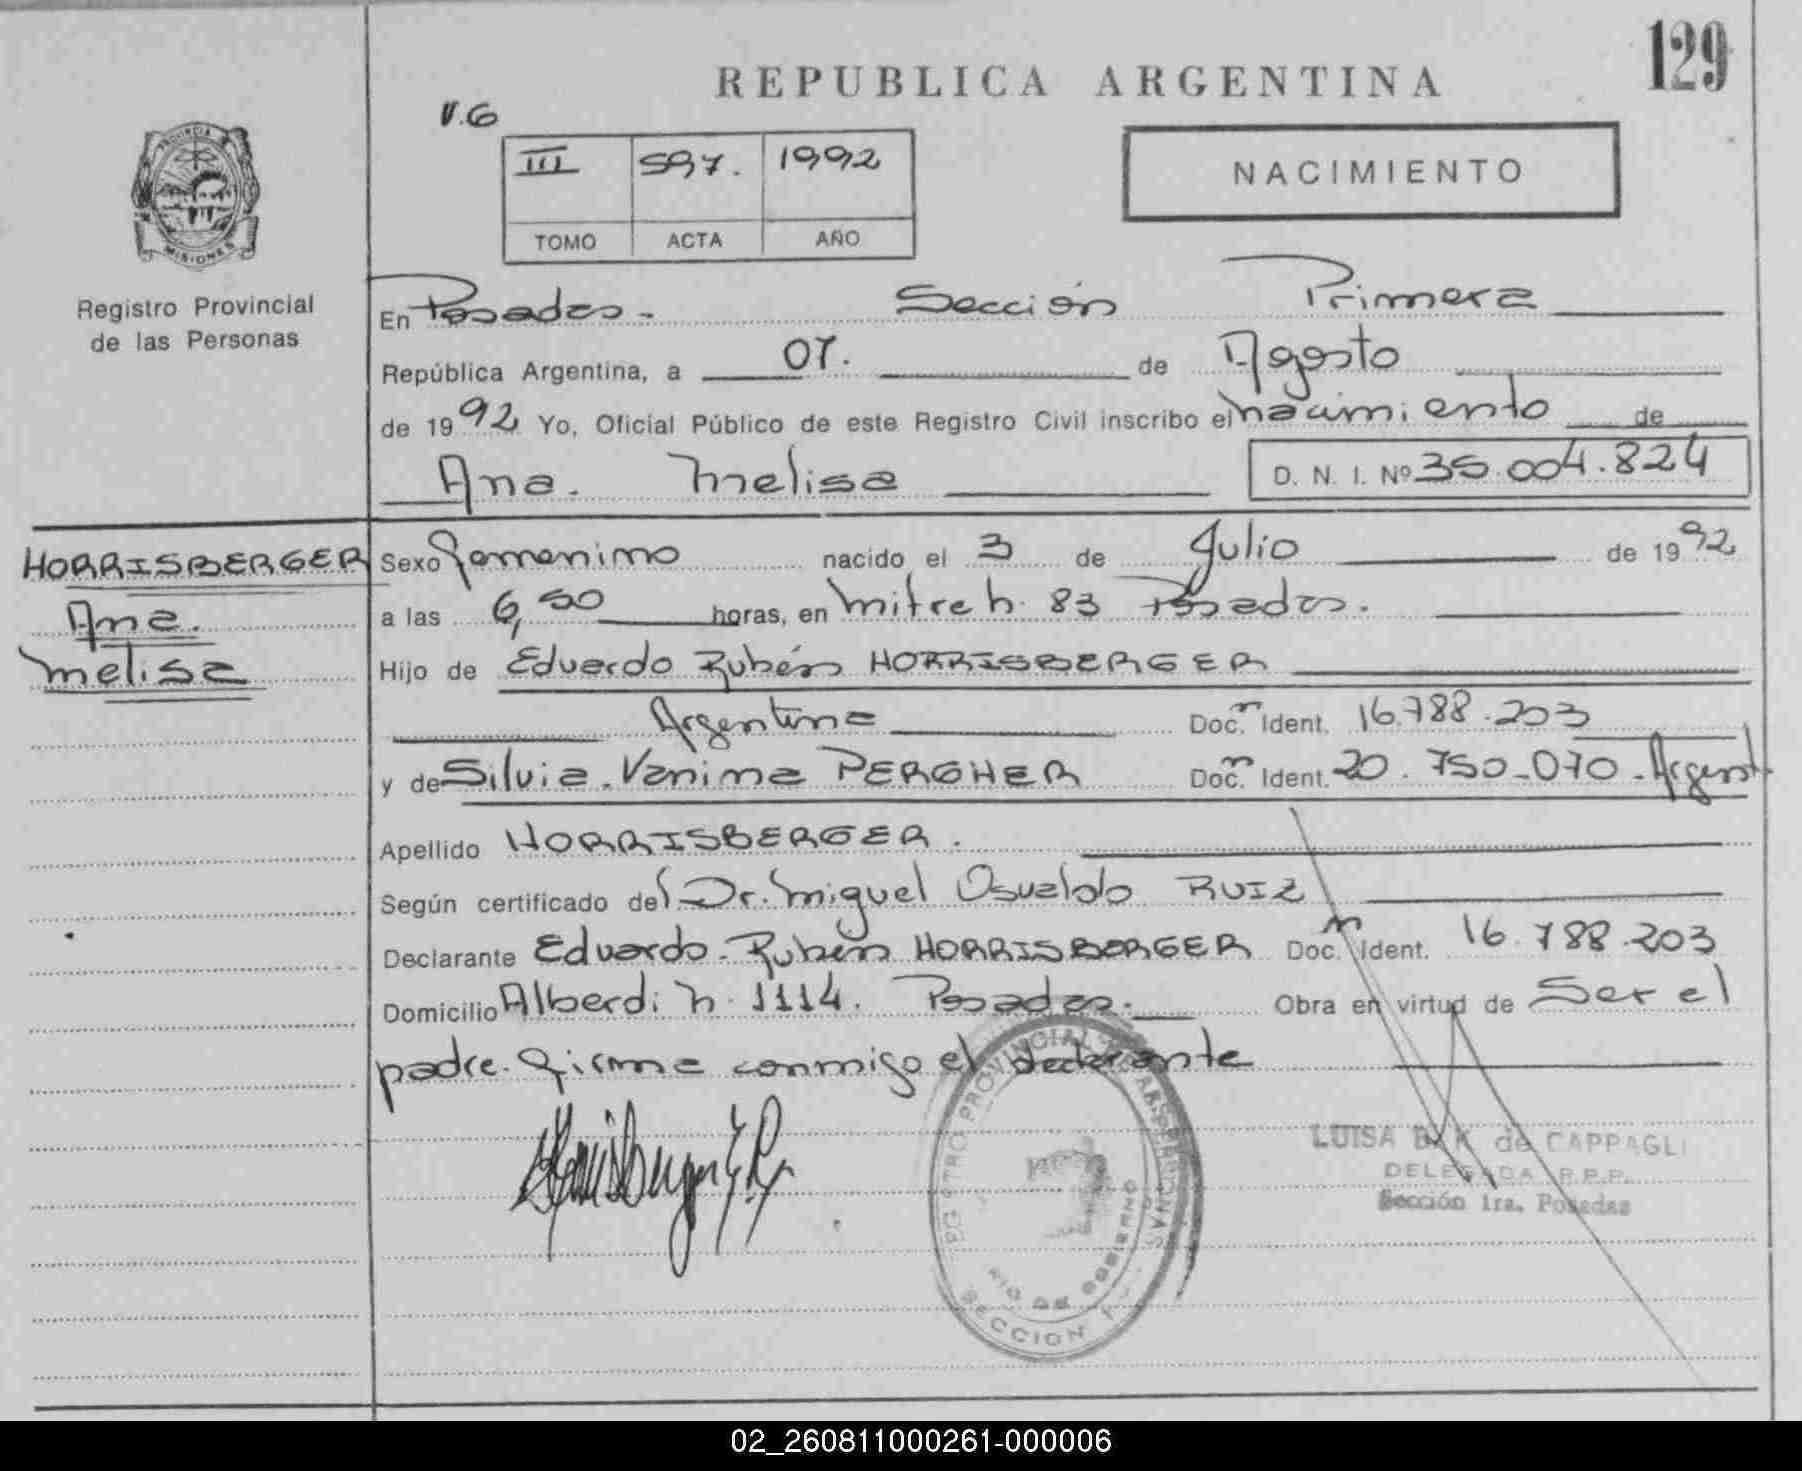 129
REPUBLICA ARGENTINA
V.G
III 597. 1992
TOMO ACTA AÑO
NACIMIENTO
PROVINCIA
MISIONES
Registro Provincial
de las Personas
En Posadas. Sección Primera
República Argentina, a 07. de Agosto
de 1992 Yo, Oficial Público de este Registro Civil inscribo el nacimiento de
Ana. Melisa D. N. I. Nº 35.004.824
HORRISBERGER
Ana.
Melisa
Sexo Femenino nacido el 3 de Julio de 1992
a las 6,50 horas, en Mitre n. 83 Posadas.
Hijo de Eduardo Rubén HORRISBERGER
Argentina Doc. Ident. 16.788.203
y de Silvia. Vanina PERGHER Doc. Ident. 20.750.070. Argent
Apellido HORRISBERGER.
Según certificado del Dr. Miguel Osvaldo RUIZ
Declarante Eduardo. Rubén HORRISBERGER Doc. Ident. 16.788.203
Domicilio Alberdi n. 1114. Posadas. Obra en virtud de Ser el
padre. Firma conmigo el declarante
LUISA B. K de CAPPAGLI
DELEGADA R.P.P.
Sección 1ra. Posadas
REGISTRO PROVINCIAL DE LAS PERSONAS
DE GOBIERNO
SECCION
02_260811000261-000006